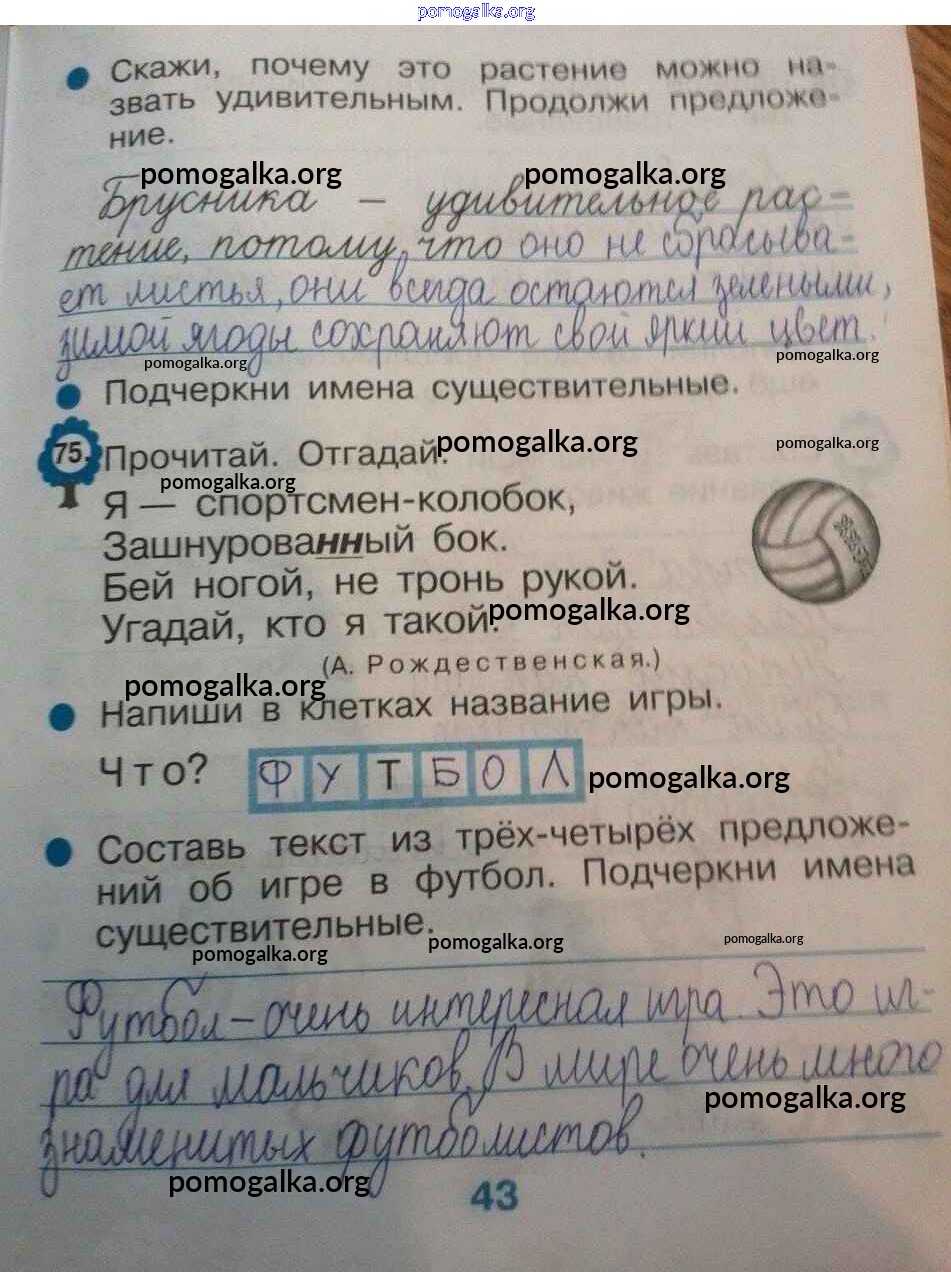 pomogalka.org
Скажи, почему это растение можно на-
звать удивительным. Продолжи предложе-
ние.
pomogalka.org pomogalka.org
Брусника – удивительное рас-
тение, потому, что оно не сбрасыва-
ет листья, они всегда остаются зелеными,
зимой ягоды сохраняют свой яркий цвет.
pomogalka.org pomogalka.org
Подчеркни имена существительные.
75. Прочитай. Отгадай. pomogalka.org pomogalka.org
pomogalka.org
Я — спортсмен-колобок,
Зашнурованный бок.
Бей ногой, не тронь рукой.
Угадай, кто я такой. pomogalka.org
(А. Рождественская.)
pomogalka.org
Напиши в клетках название игры.
Что? ФУТБОЛ pomogalka.org
Составь текст из трёх-четырёх предложе-
ний об игре в футбол. Подчеркни имена
существительные.
pomogalka.org pomogalka.org pomogalka.org
Футбол – очень интересная игра. Это иг-
ра для мальчиков. В мире очень много
pomogalka.org
знаменитых футболистов.
pomogalka.org
43